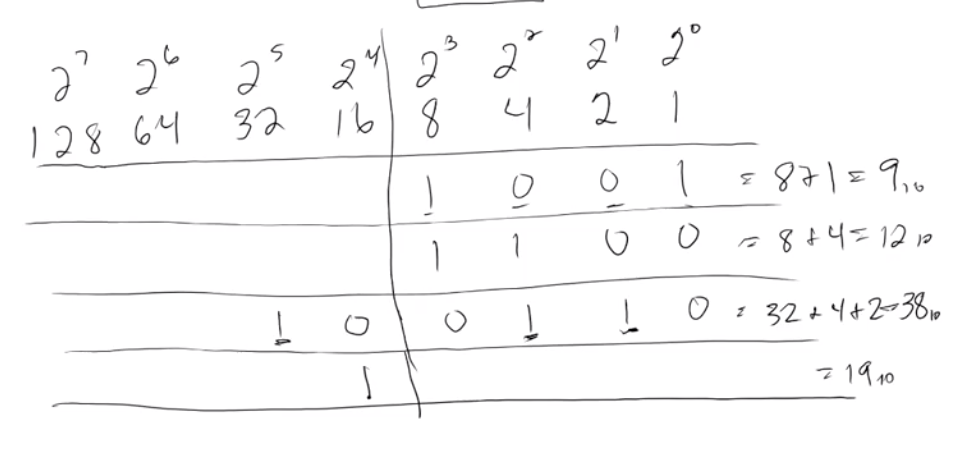 2⁷ 2⁶ 2⁵ 2⁴ 2³ 2² 2¹ 2⁰
128 64 32 16 8 4 2 1
1 0 0 1 = 8+1 = 9₁₀
1 1 0 0 = 8+4 = 12₁₀
1 0 0 1 1 0 = 32+4+2=38₁₀
1 = 19₁₀